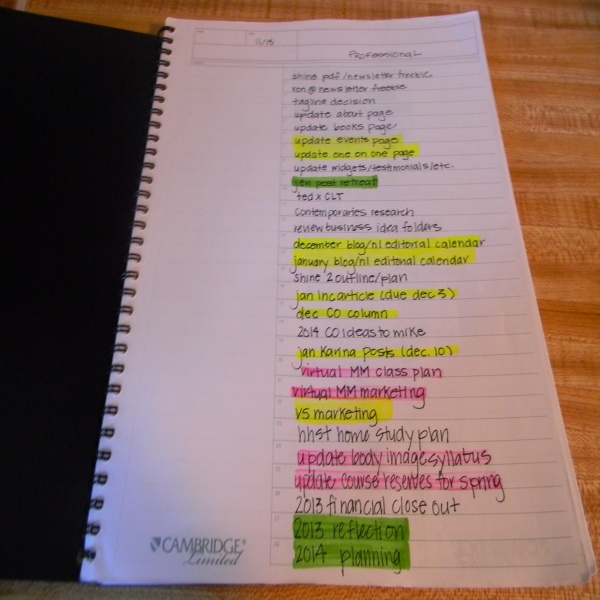 11/15
Professional
shine pdf/newsletter freebie
Kori@newsletter freebie
tagline decision
update about page
update books page
update events page
update one on one page
update widgets/testimonials/etc.
jen post retreat
ted x CLT
contemporaries research
review business idea folders
december blog/nl editorial calendar
january blog/nl editorial calendar
shine 2 outline/plan
jan incarticle (due dec 3)
dec CO column
2014 CO ideas to mike
jan Karina posts (dec. 10)
virtual MM class plan
virtual MM marketing
VS marketing
hhst home study plan
update body image syllatus
update course reserves for spring
2013 financial close out
2013 reflection
2014 planning
CAMBRIDGE®
Limited